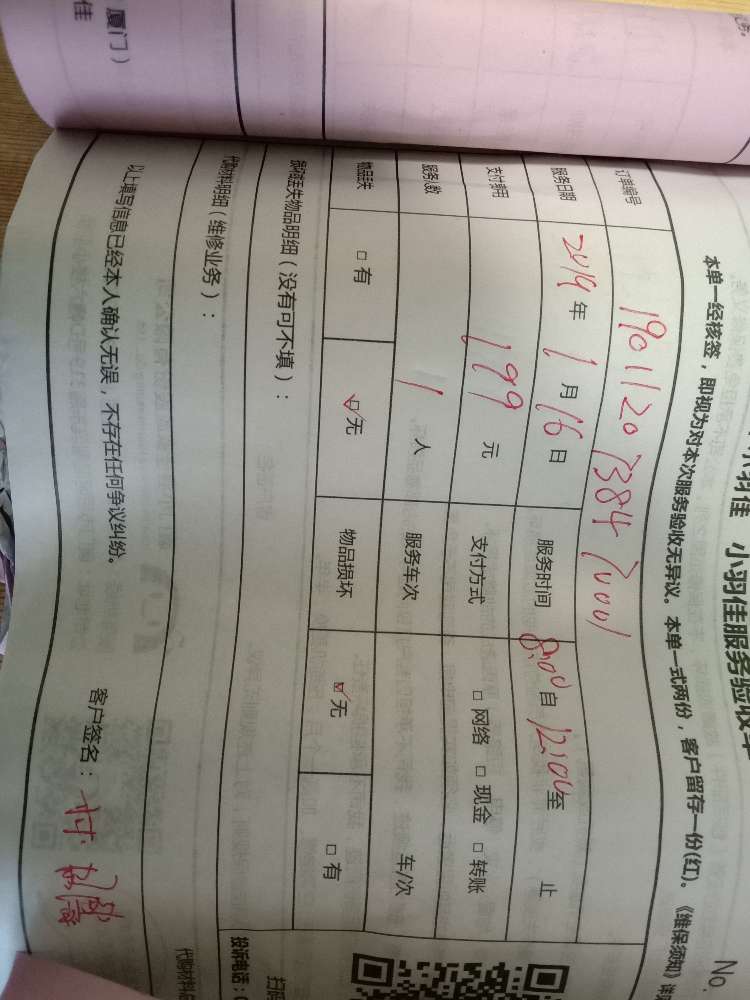 厦门）
佳
小羽佳服务验收单
No.
本单一经核签，即视为对本次服务验收无异议。本单一式两份，客户留存一份(红)。《维保须知》详
订单编号 1901120738472001
服务日期 2019 年 1 月 16 日 服务时间 8:00 自 12:00 至 止
支付费用 199 元 支付方式 □ 网络 □ 现金 □ 转账
服务人数 1 人 服务车次 车/次
物品丢失 □ 有 ☑ 无 物品损坏 ☑ 无 □ 有
损坏丢失物品明细（没有可不填）：
代购材料明细（维修业务）：
以上填写信息已经本人确认无误，不存在任何争议纠纷。
客户签名：
投诉电话：
代购材料